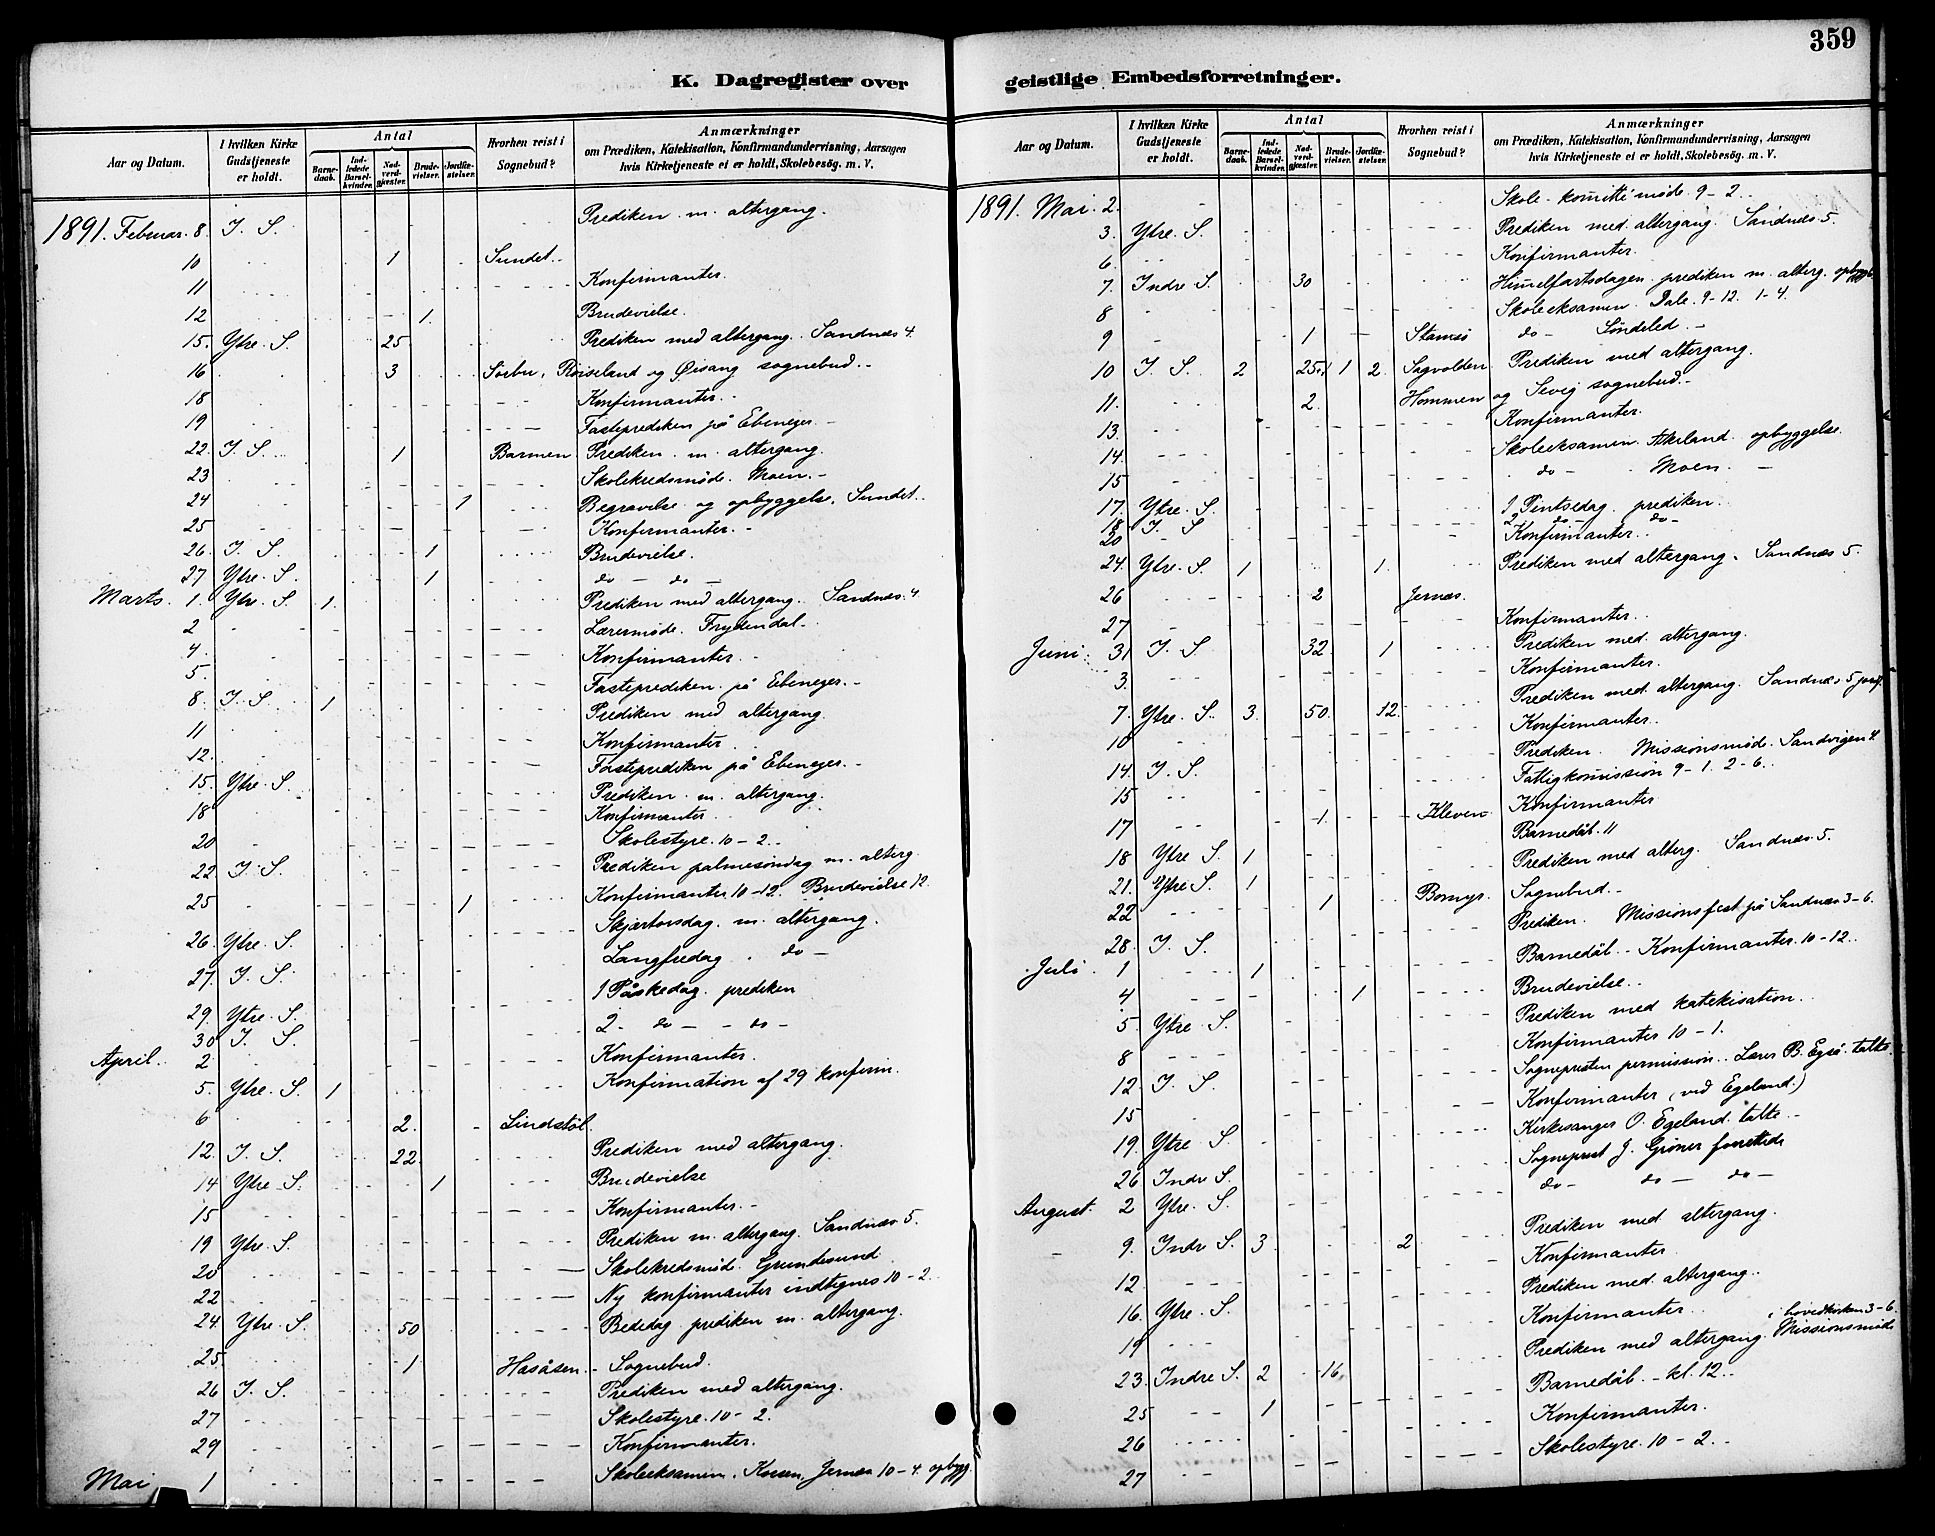 359
K. Dagregister over geistlige Embedsforretninger.
Aar og Datum. I hvilken Kirke Gudstjeneste er holdt. Antal Barne-daab. Ind-ledede Barsel-kvinder. Nad-verd-gjæster. Brude-vielser. Jordfæ-stelser. Hvorhen reist i Sognebud? Anmærkninger om Prædiken, Katekisation, Konfirmandundervisning, Aarsagen hvis Kirketjeneste ei er holdt, Skolebesög. m. V.
1891. Februar. 8. I. S. Prediken m. altergang.
10 1 Sundet.
11 Konfirmanter.
12 1. Brudevielse.
15. Ytre. S. 25 Prediken med altergang. Sandnæs 4.
16 3 Sörbu, Röiseland og Øisang sognebud.
18 Konfirmanter.
19 Fasteprediken på Ebenezer.
22. I. S. 1 Barmen Prediken m. altergang.
23 Skolekredsmöde. Moen.
24 1 Begravelse og opbyggelse. Sundet.
25 Konfirmanter.
26. I. S. 1 Brudevielse.
27 Ytre. S. 1 do - do -
Marts. 1. Ytr. S. 1. Prediken med altergang. Sandnæs. 4
2 Lærermöde. Frydendal.
4. Konfirmanter.
5. Fasteprediken på Ebenezer.
8. I. S 1 Prediken med altergang.
11 Konfirmanter.
12. Fasteprediken på Ebenezer.
15. Ytre. S. Prediken m. altergang.
18 Konfirmanter.
20 Skolestyre. 10 - 2.
22 I. S. Prediken palmesöndag m. alterg.
25 1 Konfirmanter 10 - 12. Brudevielse 12.
26. Ytre. S. Skjærtorsdag. m. altergang.
27. I. S. Langfredag. do -
29. Ytre. S. 1 Påskedag. prediken
30 I. S. 2. do - - do -
April. 2 Konfirmanter.
5. Ytre. S. 1 Konfirmation af 29 konfirm.
6 2. Lindstöl.
12. I. S. 22 Prediken med altergang.
14 Ytre. S. 1 Brudevielse
15 Konfirmanter.
19 Ytre. S. Prediken m. altergang. Sandnæs 5.
20 Skolekredsmöde. Grundesund
22 Ny konfirmanter indtegnes 10 - 2.
24. Ytre. S. 50 Bededag prediken m. altergang.
25 1 Hasåsen. Sognebud.
26 I. S. Prediken med altergang.
27 Skolestyre. 10 - 2.
29 Konfirmanter.
Mai 1 Skoleeksamen. Jernæs 10 - 4. opbygg.
Aar og Datum. I hvilken Kirke Gudstjeneste er holdt. Antal Barne-daab. Ind-ledede Barsel-kvinder. Nad-verd-gjæster. Brude-vielser. Jordfæ-stelser. Hvorhen reist i Sognebud? Anmærkninger om Prædiken, Katekisation, Konfirmandundervisning, Aarsagen hvis Kirketjeneste ei er holdt, Skolebesög. m. V.
1891. Mai. 2. Skole-komitémöde. 9 - 2.
3. Ytre. S. Prediken med altergang. Sandnæs. 5.
6. Konfirmanter.
7. Indre S. 30 Himelfartsdagen. prediken m. alterg. opbygg.
8 Skoleeksamen. Dale. 9-12. 1-4.
9 1 Stamsö do - Söndeled.
10 I. S. 2 25 1 2 Sagvolden Prediken med altergang.
11. 2. Hommen og Sevig sognebud.
13. Konfirmanter.
14. Skoleeksamen. Akerland. opbyggelse.
15 do - Moen.
17. Ytre. S. 1 Pintsedag. prediken.
18 I. S 2 do - do -
20 Konfirmanter.
24. Ytre. S. 1 1. Prediken med altergang. Sandnæs 5.
26 2 Jernæs.
27 Konfirmanter.
Juni. 31 I. S 32. 1 Prediken med altergang.
3. Konfirmanter.
7. Ytre. S. 3. 50. 12. Prediken med altergang. Sandnæs 5
10 Konfirmanter.
14. I. S. Prediken. Missionsmöde. Sandvigen 4
15 Fattigkomission 9 - 1. 2 - 6.
17 1. Kleven Konfirmanter
18 Ytre S. 1 Barnedåb. 11
21. Ytre S. 1 Prediken med alterg. Sandnæs. 5.
22 1 Bomyr. Sognebud.
28. I. S. Prediken. Missionsfest på Sandnæs 3-6.
Juli. 1 1 Barnedåb. - Konfirmanter. 10 - 12.
4 1 Brudevielse.
5. Ytre S. Prediken med katekisation.
8 Konfirmanter 10 - 1.
12. I. S. Sognepresten permission. Lærer B. Egsö. talte
15 Konfirmanter (ved Egeland.)
19. Ytre S. Kirkesanger O. Egeland talte.
26 Indre S. Sogneprest J. Gröner forrettede
August. 2 Ytre. S. do - do - do -
9. Indr S. 3 2 Prediken med altergang.
12 Konfirmanter
16. Ytre. S. Prediken med altergang.
19 Konfirmanter
23. Indre S. 2 16, Prediken med altergang. Missionsmöde i hovedkirken 3-6.
25 1 Barnedåb. - kl. 12.
26 Konfirmanter.
27 Skolestyre. 10 - 2.